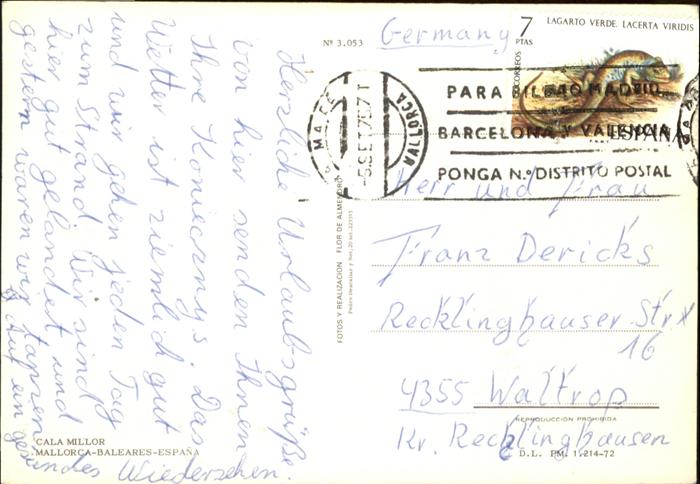 Herzliche Urlaubsgrüße
von hier senden Ihnen
Ihre Koniecznys. Das
Wetter ist ziemlich gut
und wir gehen jeden Tag
zum Strand. Wir sind
hier gut gelandet und
gestern waren wir tanzen
Auf ein
gesundes Wiedersehen.
CALA MILLOR
MALLORCA-BALEARES-ESPAÑA
Nº 3.053
FOTOS Y REALIZACION FLOR DE ALMENDRO
Germany
7
PTAS
CORREOS
LAGARTO VERDE. LACERTA VIRIDIS
ESPAÑA
MALLORCA
-5.SET.75.7T
PARA BILBAO MADRID
BARCELONA Y VALENCIA
PONGA N.º DISTRITO POSTAL
Herr und Frau
Franz Dericks
Recklinghauser Str
16
4355 Waltrop
Kr. Recklinghausen
REPRODUCCIÓN PROHIBIDA
D.L. PM. 1.214-72